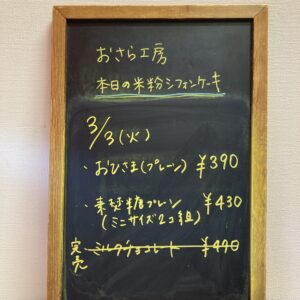 おさら工房
本日の米粉シフォンケーキ
3/3(火)
・おひさま(プレーン) ¥390
・素焚糖プレーン ¥430
(ミニサイズ2コ組)
完売 ミルクチョコレート ¥490